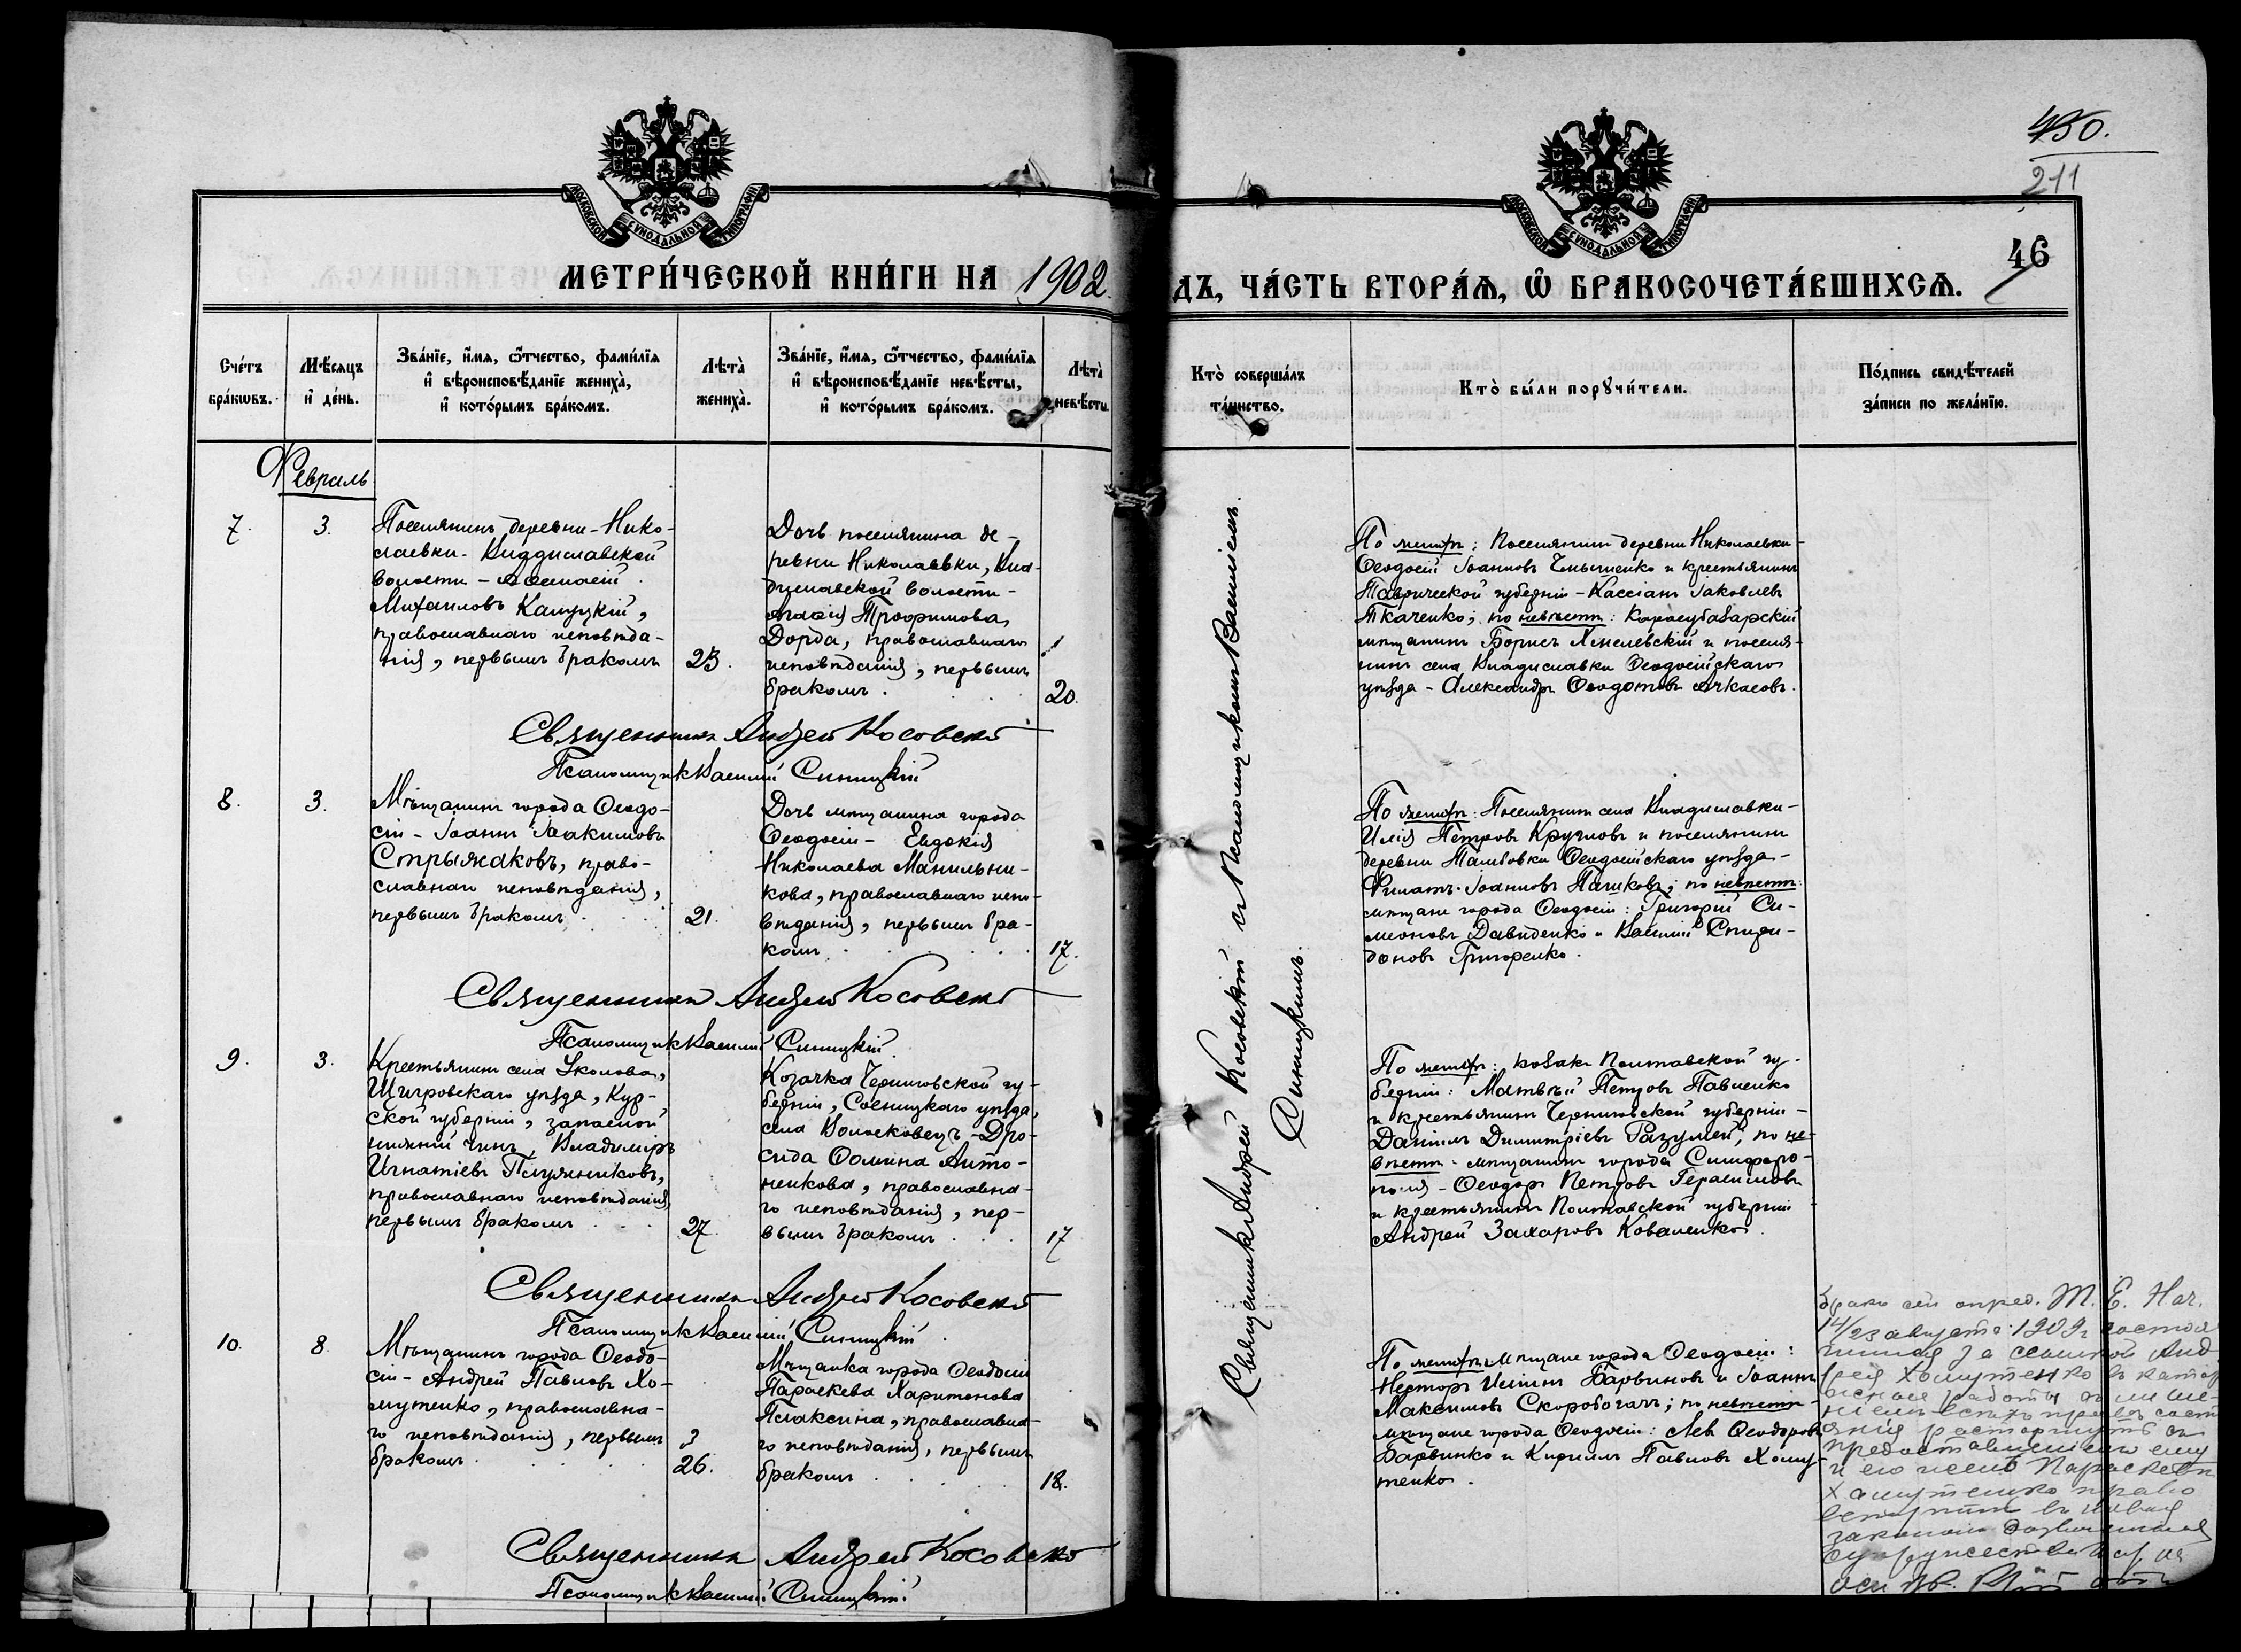 450.
211
46
МОСКОВСКОЙ СѴНОДАЛЬНОЙ ТИПОГРАФІИ
МЕТРИ́ЧЕСКОЙ КНИ́ГИ НА 1902
МОСКОВСКОЙ СѴНОДАЛЬНОЙ ТИПОГРАФІИ
ДЪ, ЧА́СТЬ ВТОРА́Я, Ѡ БРАКОСОЧЕТА́ВШИХСЯ.
Сче́тъ
бра́кѡвъ.
Мѣ́сяцъ
и҆ де́нь.
Зва́нїе, и҆́мя, ѻ҆́тчество, фами́лїя
и҆ вѣроисповѣ́данїе жениха̀,
и҆ кото́рымъ бра́комъ.
Лѣта̀
жениха̀.
Зва́нїе, и҆́мя, ѻ҆́тчество, фами́лїя
и҆ вѣроисповѣ́данїе невѣ́сты,
и҆ кото́рымъ бра́комъ.
Лѣта̀
невѣ́сты.
Кто̀ соверша́лъ
та́инство.
Кто̀ бы́ли порꙋчи́тели.
По́дпись свидѣ́телей
за́писи по жела́нїю.
Февраль
7.
3.
Поселянинъ деревни Нико-
лаевки Владиславской
волости –
Михаиловъ Калуцкій,
православнаго исповѣда-
нія, первымъ бракомъ
23.
Дочь поселянина де-
ревни Николаевки, Вла-
диславской волости –
Агаѳія Трофимова
Дорда, православнаго
исповѣданія, первымъ
бракомъ.
20.
По женихѣ: поселянинъ деревни Николаевки
Ѳеодосій Іоанновъ и крестьянинъ
Таврической губерніи – Кассіанъ Іаковлевъ
Ткаченко; по невѣстѣ: Карасубазарскій
мѣщанинъ Борисъ Хмелевскій и поселя-
нинъ села Владиславки Ѳеодосійскаго
уѣзда – Александръ Ѳеодотовъ Ачкасовъ.
Священникъ Андрей Косовскій
Псаломщикъ Василій Синицкій
8.
3.
Мѣщанинъ города Ѳеодо-
сіи – Іоаннъ Іоакимовъ
Стрыжаковъ, право-
славнаго исповѣданія,
первымъ бракомъ
21.
Дочь мѣщанина города
Ѳеодосіи – Евдокія
Николаева Манильни-
кова, православнаго испо-
вѣданія, первымъ бра-
комъ
17.
По женихѣ: Поселянинъ села Владиславки –
Илія Петровъ Кругловъ и поселянинъ
деревни Тамбовки Ѳеодосійскаго уѣзда –
Филатъ Іоанновъ Пашковъ; по невѣстѣ:
мѣщане города Ѳеодосіи: Григорій Си-
меоновъ Давиденко и Василій Спири-
доновъ Григоренко.
Священникъ Андрей Косовскій
Псаломщикъ Василій Синицкій.
9.
3.
Крестьянинъ села Уколова,
Щигровскаго уѣзда, Кур-
ской губерніи, запасной
нижній чинъ Владиміръ
Игнатіевъ Плужниковъ,
православнаго исповѣданія,
первымъ бракомъ
27.
Козачка Черниговской гу-
берніи, Сосницкаго уѣзда,
села Волосковецъ – Дро-
сида Ѳомина Анто-
ненкова, православна-
го исповѣданія, пер-
вымъ бракомъ
17
По женихѣ: козакъ Полтавской гу-
берніи: Матвѣй Петровъ Павленко
и крестьянинъ Черниговской губерніи –
Даніилъ Димитріевъ Разумей; по не-
вѣстѣ – мѣщанинъ города Симферо-
поля – Ѳеодоръ Петровъ Герасимовъ
и крестьянинъ Полтавской губерніи
Андрей Захаровъ Коваленко.
Священникъ Андрей Косовскій
Псаломщикъ Василій Синицкій.
10.
8.
Мѣщанинъ города Ѳеодо-
сіи – Андрей Павловъ Хо-
мутенко, православна-
го исповѣданія, первымъ
бракомъ
26.
Мѣщанка города Ѳеодосіи
Параскева Харитонова
Плаксина, православна-
го исповѣданія, первымъ
бракомъ
18.
По женихѣ мѣщане города Ѳеодосіи:
Несторъ Барвинокъ и Іоаннъ
Максимовъ Скоробогачъ; по невѣстѣ –
мѣщане города Ѳеодосіи: Левъ Ѳеодоровъ
Барвинко и Кириллъ Павловъ Хому-
тенко.
Бракъ сей опред. Т. Е. Нач.
14/23 августа 1909 г. состоя
за ссылкой Анд
рея Хомутенко въ катор
жныя работы съ лише-
ніемъ всѣхъ правъ состо
янія расторгнутъ съ
предоставленіемъ ему
и его женѣ Параскевѣ
Хомутенко право
вступить въ новыя
закономъ дозволенныя
супружества
Священникъ Андрей Косовскій
Псаломщикъ Василій Синицкій.
Священникъ Андрей Косовскій съ Псаломщикомъ Василіемъ
Синицкимъ.